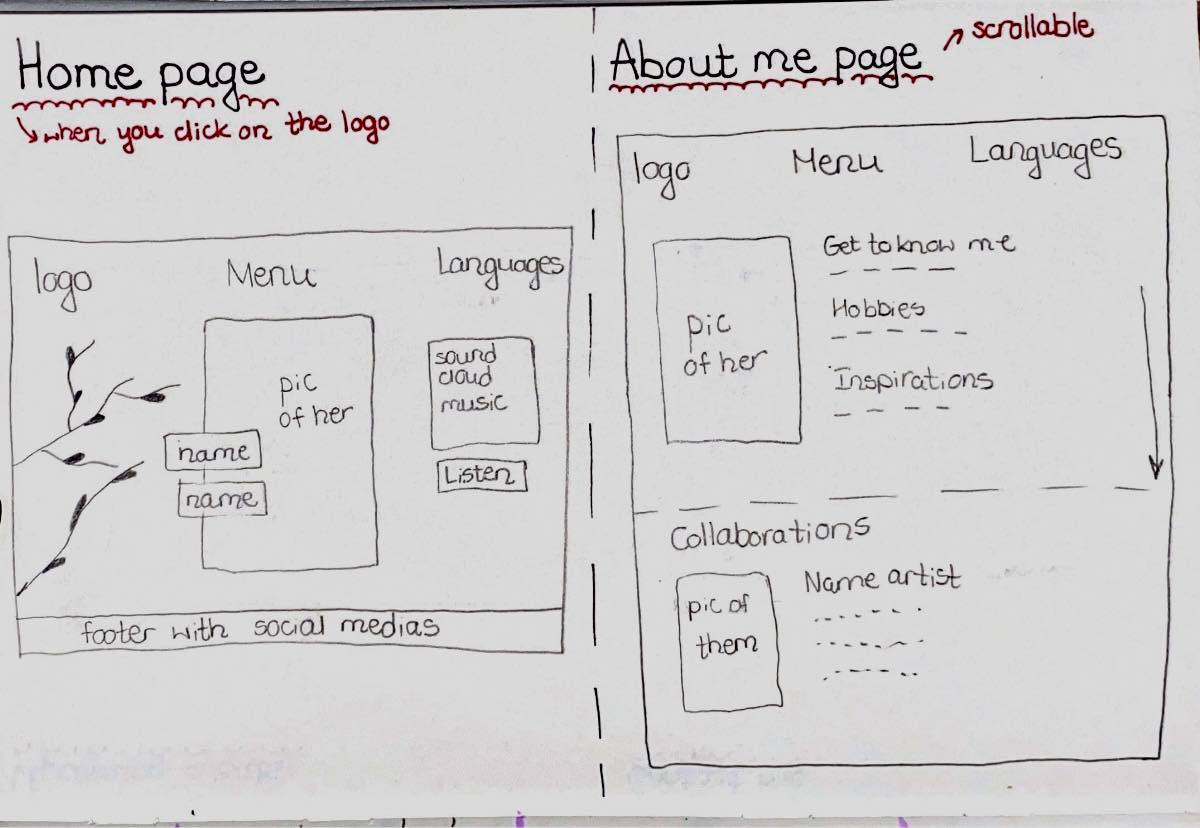 Home page
when you click on the logo
logo Menu Languages
pic
of her
name
name
sound
cloud
music
Listen
footer with social medias
About me page
scrollable
logo Menu Languages
pic
of her
Get to know me
Hobbies
Inspirations
Collaborations
pic of
them
Name artist